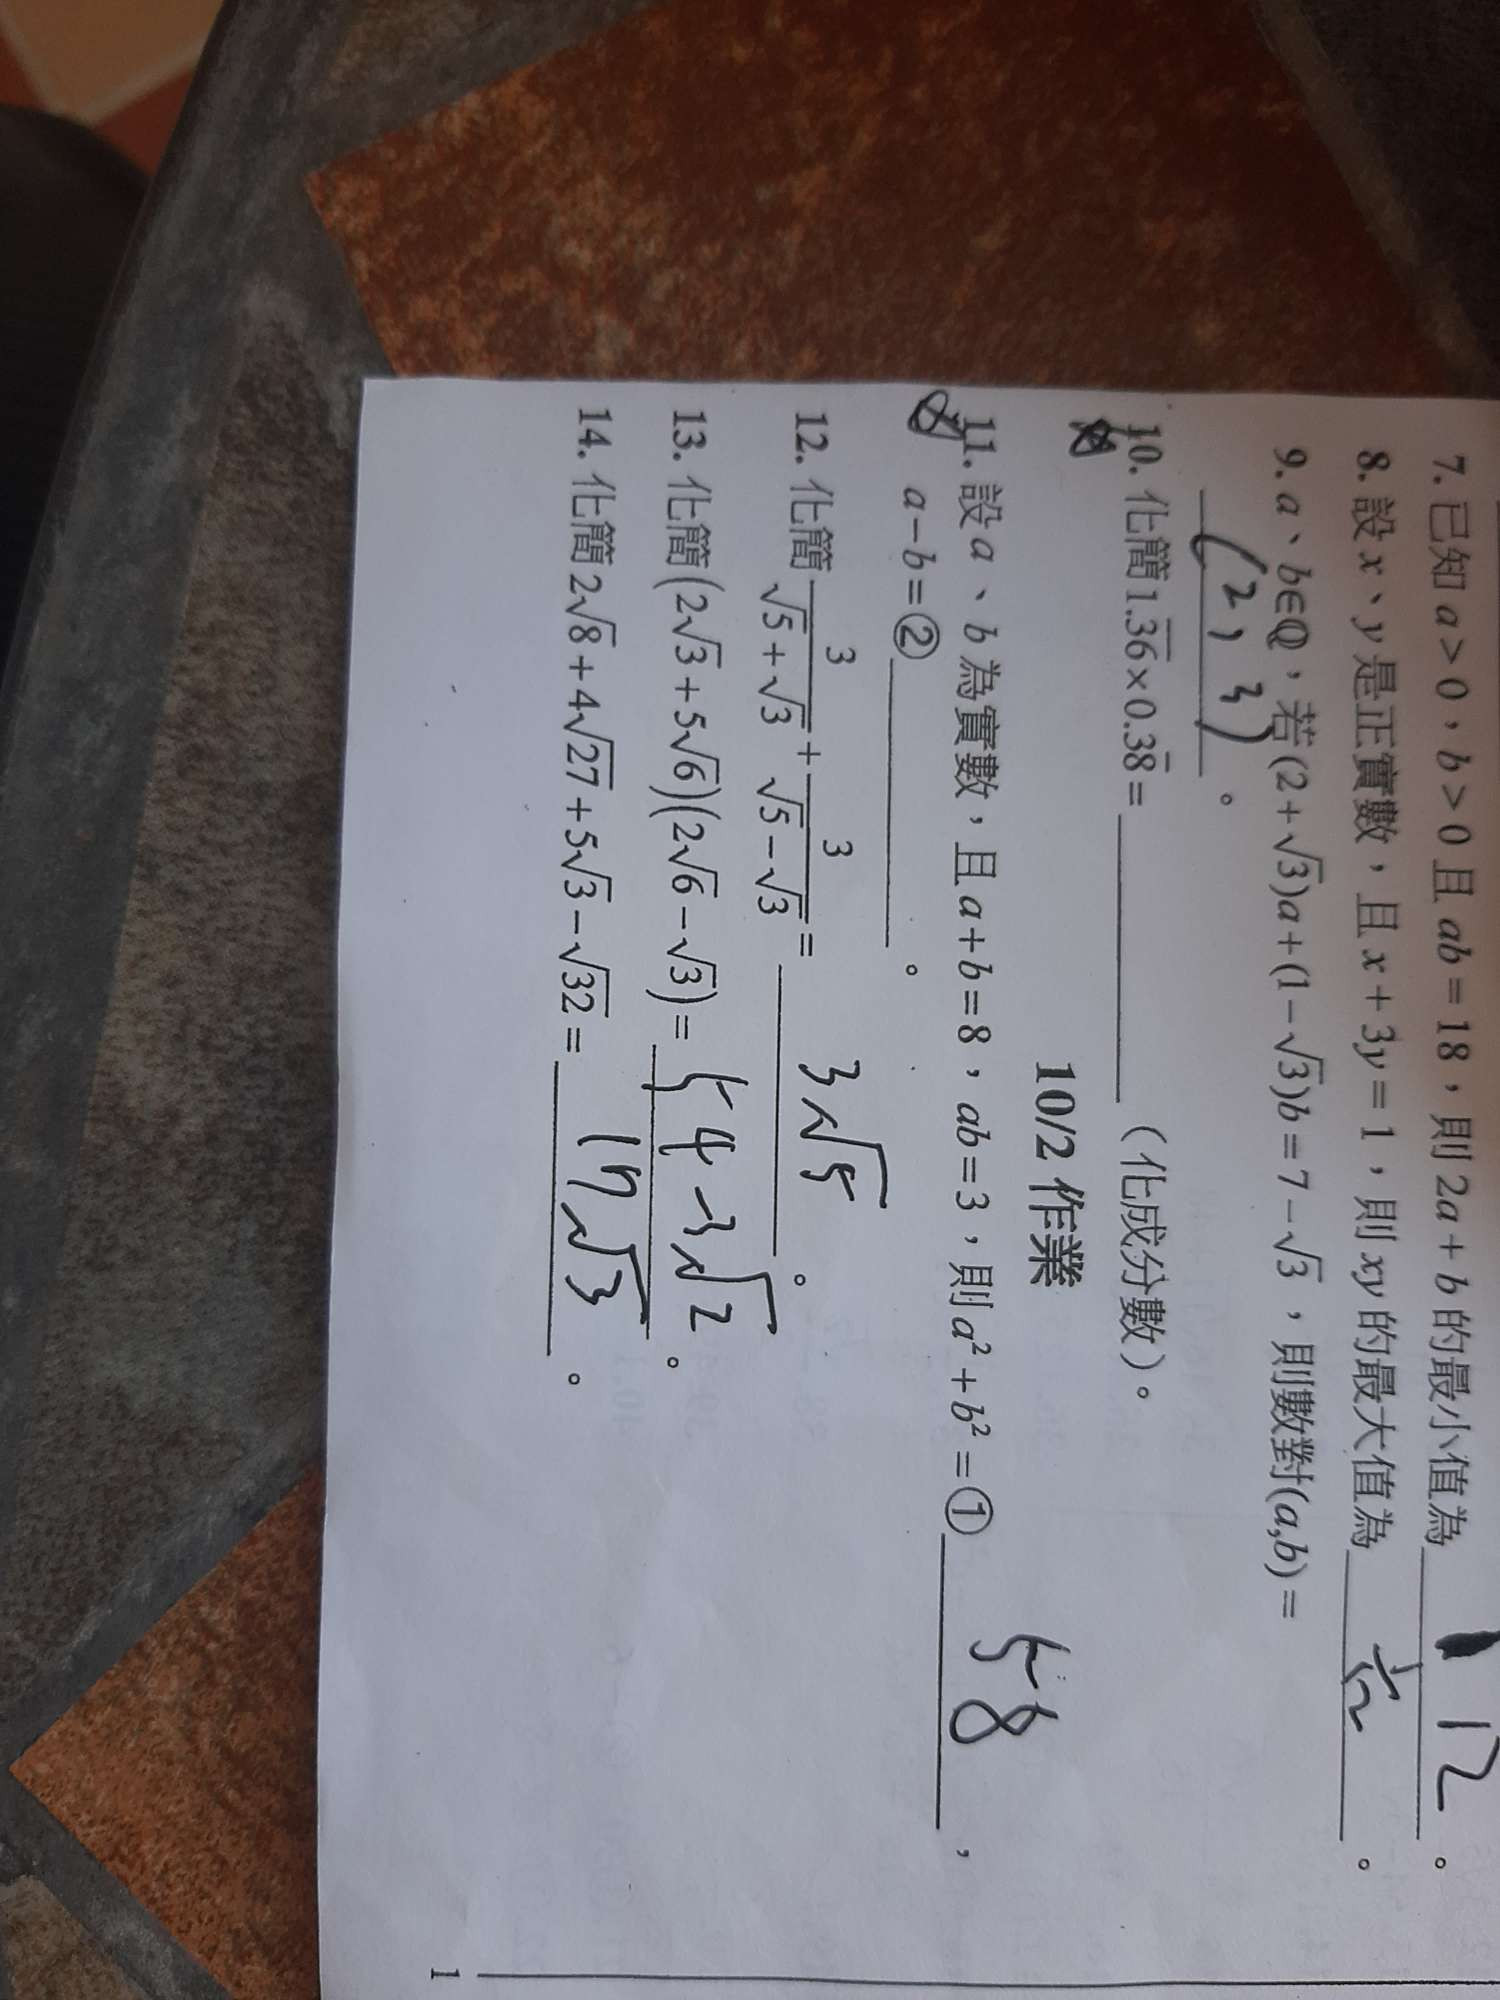 7. 已知 a > 0，b > 0 且 ab = 18，則 2a + b 的最小值為 12 。
8. 設 x、y 是正實數，且 x + 3y = 1，則 xy 的最大值為 1/12 。
9. a、b∈ℚ，若(2+√3)a+(1−√3)b=7−√3，則數對(a,b)=
(2, 3) 。
10. 化簡1.3̅6̅×0.38̅=（化成分數）。
10/2 作業
11. 設a、b為實數，且a+b=8，ab=3，則a²+b²=① 58 ，
a−b=② 。
12. 化簡 3/(√5+√3) + 3/(√5−√3) = 3√5 。
13. 化簡(2√3+5√6)(2√6−√3)= 54-3√2 。
14. 化簡2√8+4√27+5√3−√32= 17√3 。
1